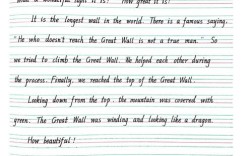 What a wonderful sight it is! How great it is!
It is the longest wall in the world. There is a famous saying,
"He who doesn't reach the Great Wall is not a true man." So
we tried to climb the Great Wall. We helped each other during
the process. Finally, we reached the top of the Great Wall.
Looking down from the top, the mountain was covered with
green. The Great Wall was winding and looking like a dragon.
How beautiful!